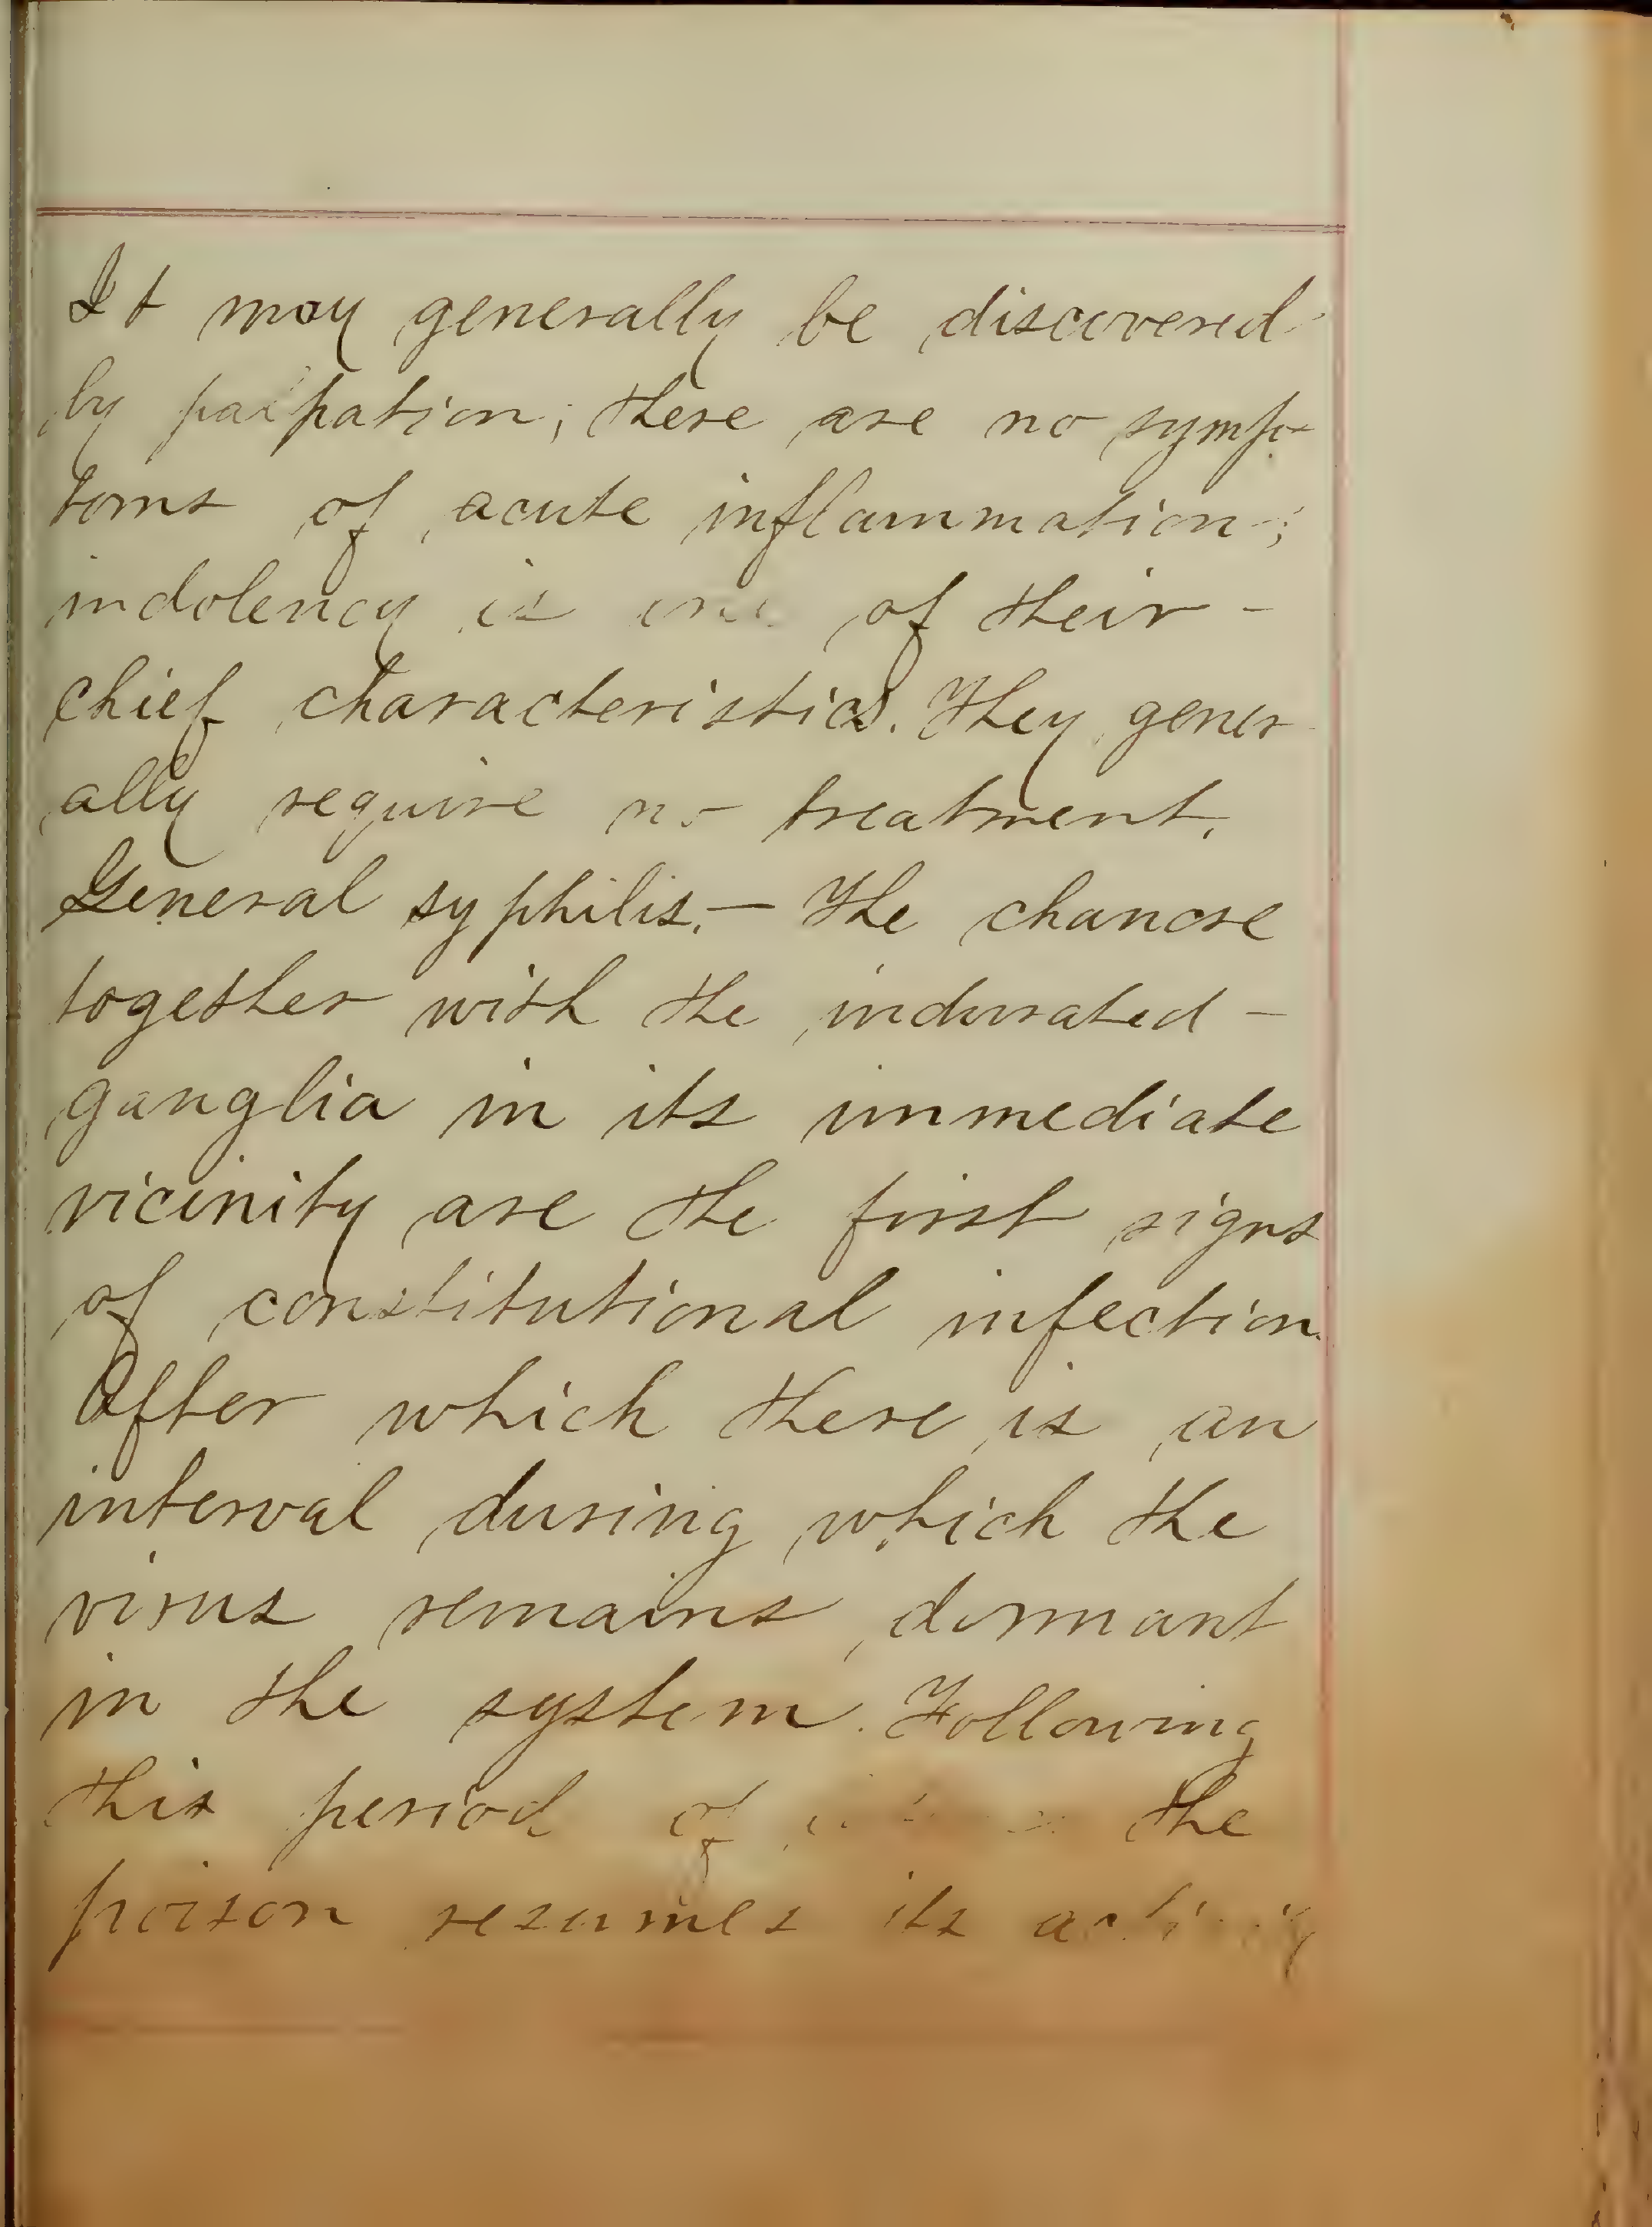 It may generally be discovered
by palpation; there are no symp-
toms of acute inflammation;
indolency is one of their -
chief characteristics. They gener
ally require no treatment.
General syphilis.— The chancre
together with the indurated -
ganglia in its immediate
vicinity are the first signs
of constitutional infection.
After which there is an
interval during which the
virus remains dormant
in the system. Following
this period of the
poison resumes its activity